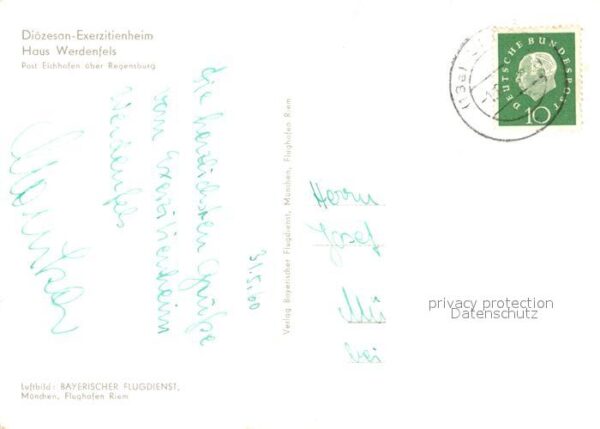 Diözesan-Exerzitienheim
Haus Werdenfels
Post Eichhofen über Regensburg
die herzlichsten Grüße
vom Exerzitienheim
Werdenfels
31.5.60
Verlag Bayerischer Flugdienst, München, Flughafen Riem
DEUTSCHE BUNDESPOST
10
(13a)
Herrn
Josef
Mü
bei
privacy protection
Datenschutz
Luftbild: BAYERISCHER FLUGDIENST,
München, Flughafen Riem